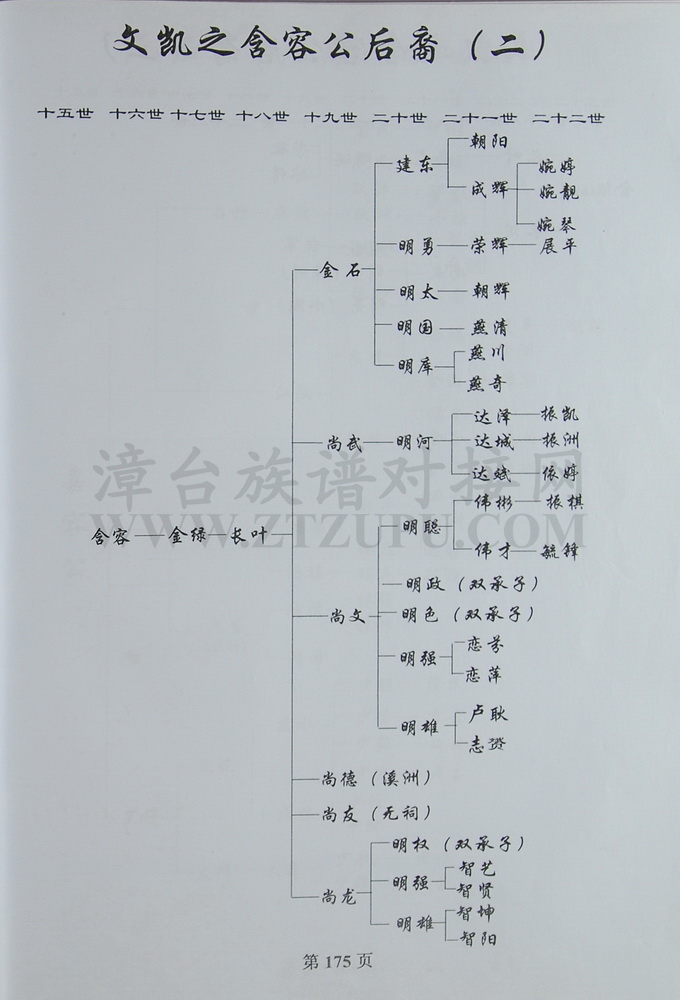 文凯之含容公后裔（二）
十五世 十六世 十七世 十八世 十九世 二十世 二十一世 二十二世
朝阳
建东
婉婷
成辉 婉靓
婉琴
明勇 荣辉 展平
金石
明太 朝辉
明国 燕清
燕川
明库
燕奇
达泽 振凯
尚武 明河 达城 振洲
达斌 依婷
漳台族谱对接网
WWW.ZTZUPU.COM
伟彬 振棋
明聪
含容 金绿 长叶
伟才 毓锋
明政（双承子）
尚文 明色（双承子）
恋芬
明强
恋萍
卢耿
明雄
志赟
尚德（溪洲）
尚友（无祠）
明权（双承子）
智艺
明强
智贤
尚龙
智坤
明雄
智阳
第 175 页